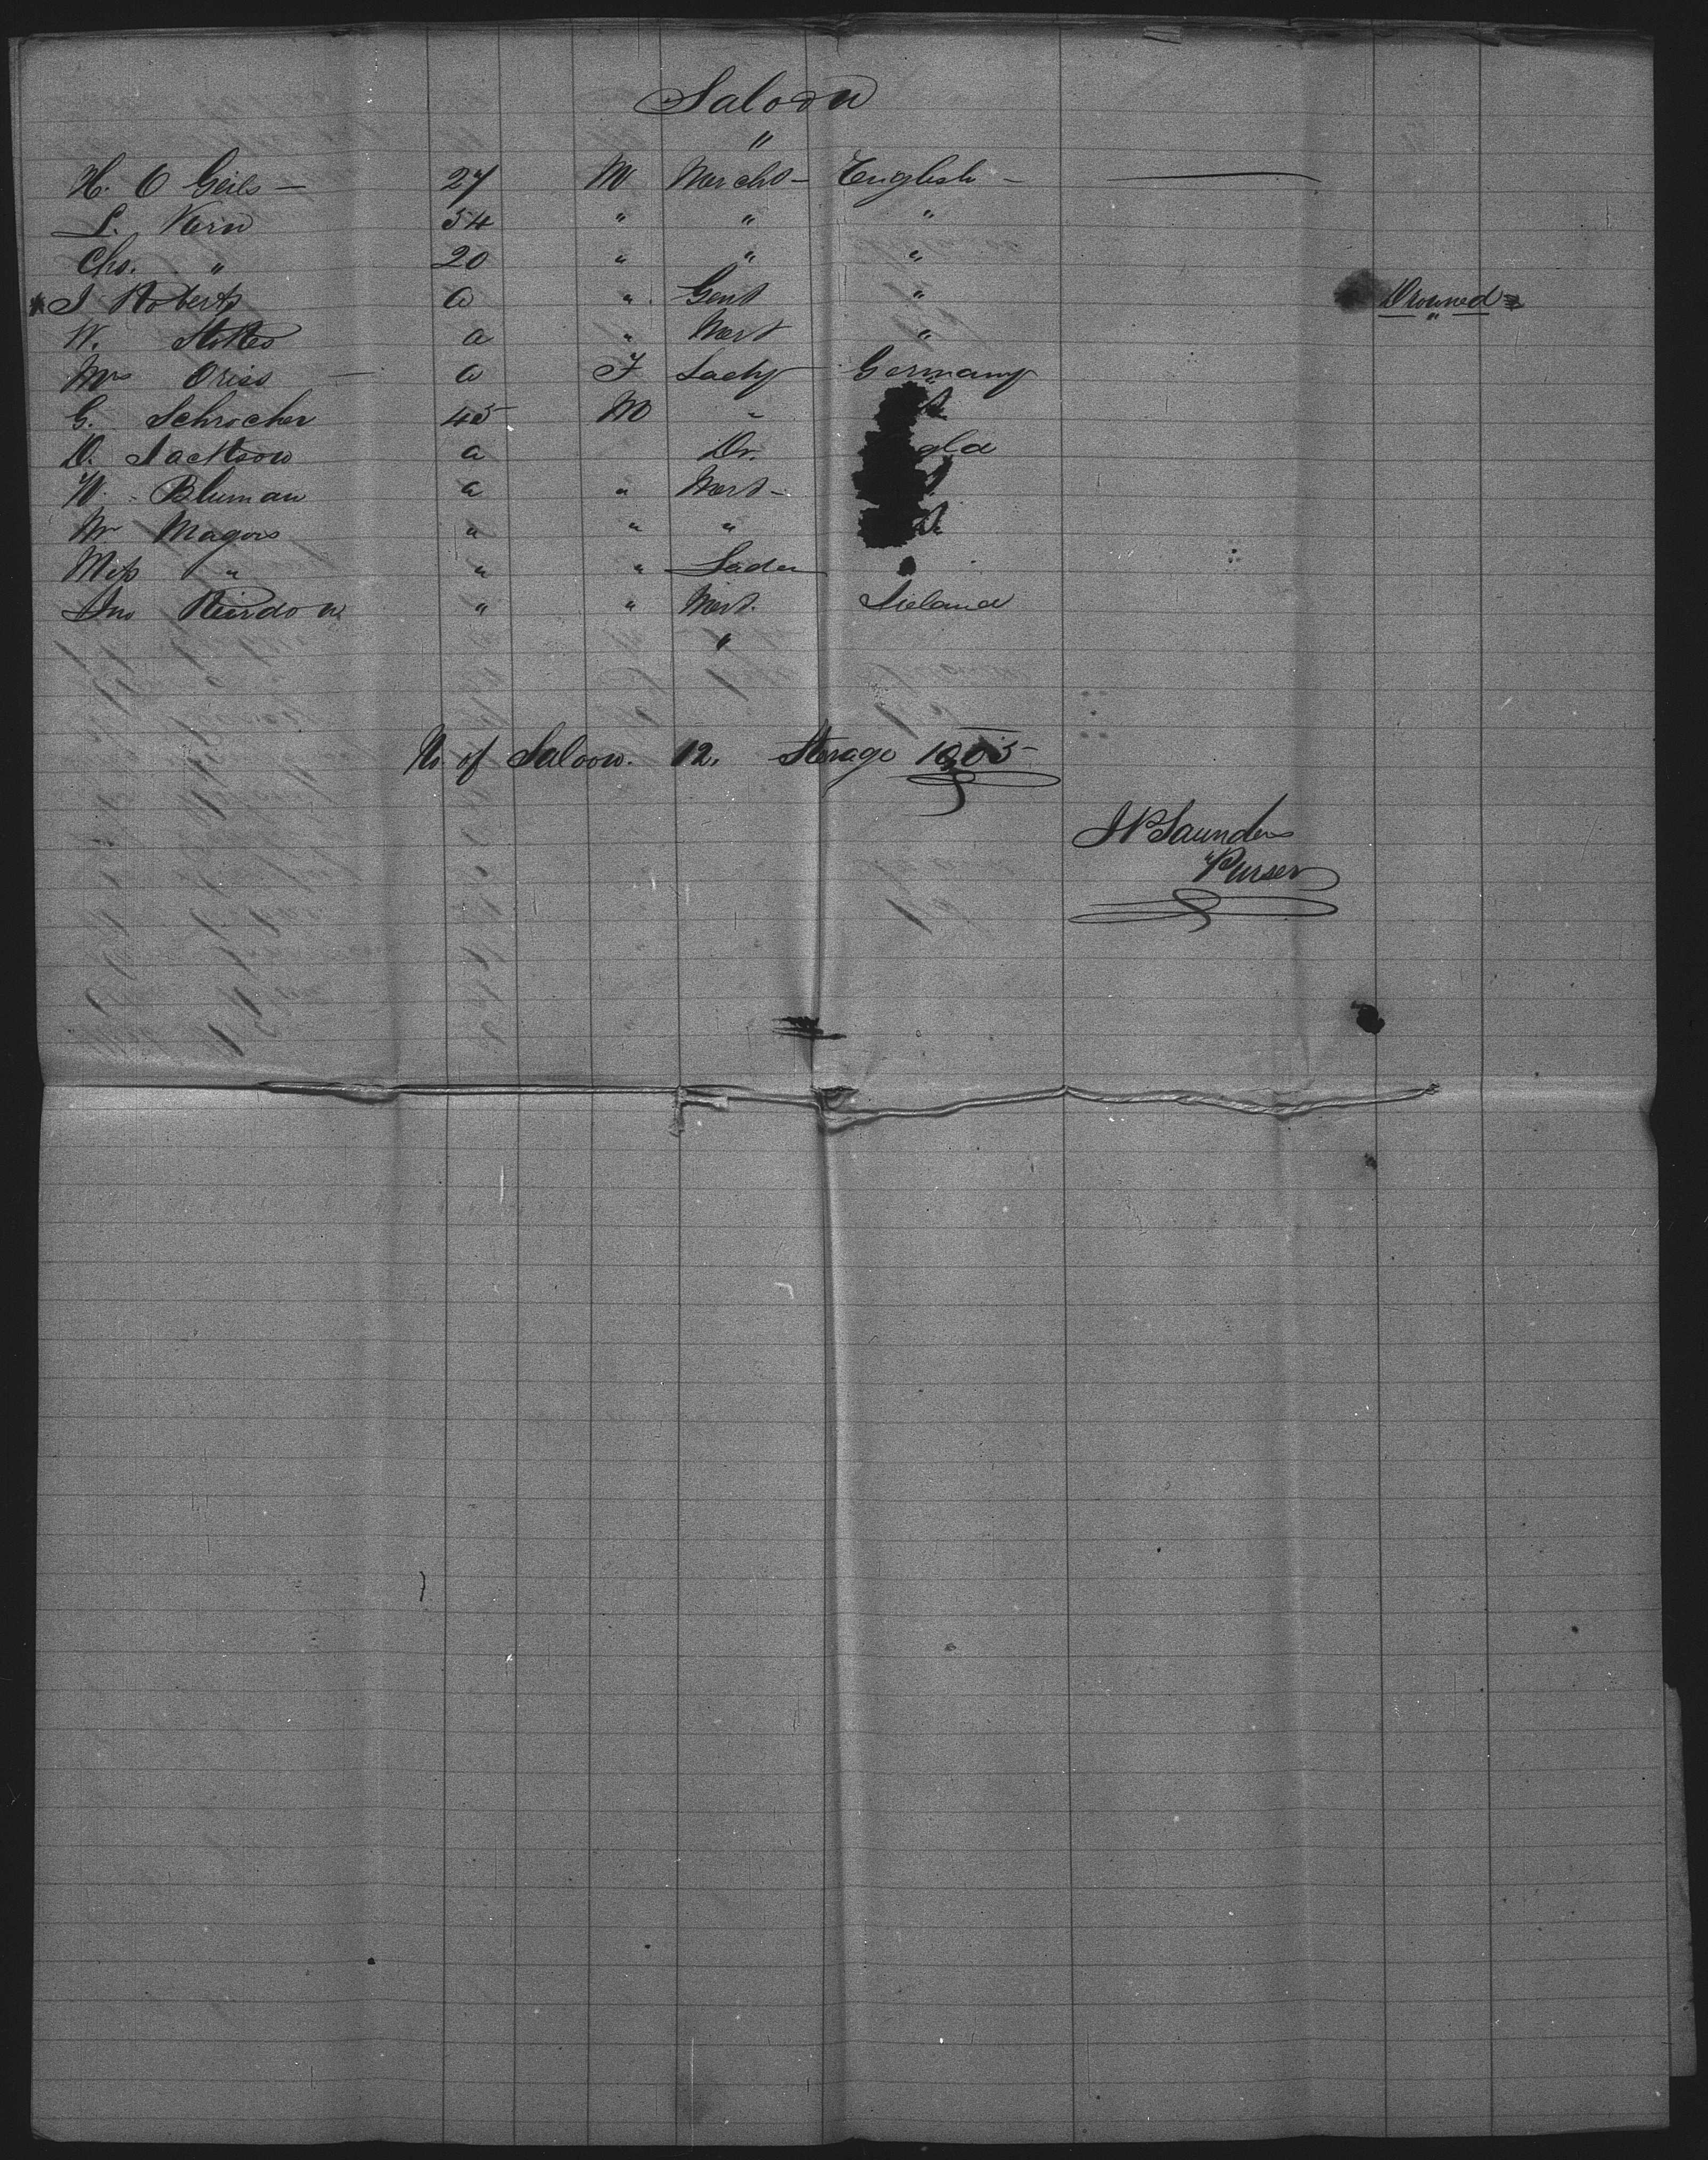 Saloon
"
H. O Geils — 27 M Mercht — English —
L. Kern 54 " " "
Chs. " 20 " " "
J Roberts a " Gent " Drowned
W. Stokes a " Mert "
Mrs Oriss — a F Lady Germany
G. Schrocher 45 M "
D. Jackson a Dr. gld
W. Bluman a " Mert -
Mr Magors " " "
Miss " " " Lader
Jno Reirdon " " Mert. Ireland
"
No of Saloon. 12. Sterage
J P Saunders
Purser